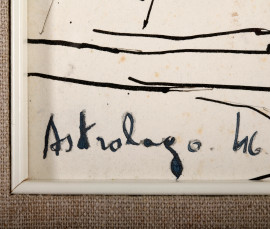 Astrologo. 46